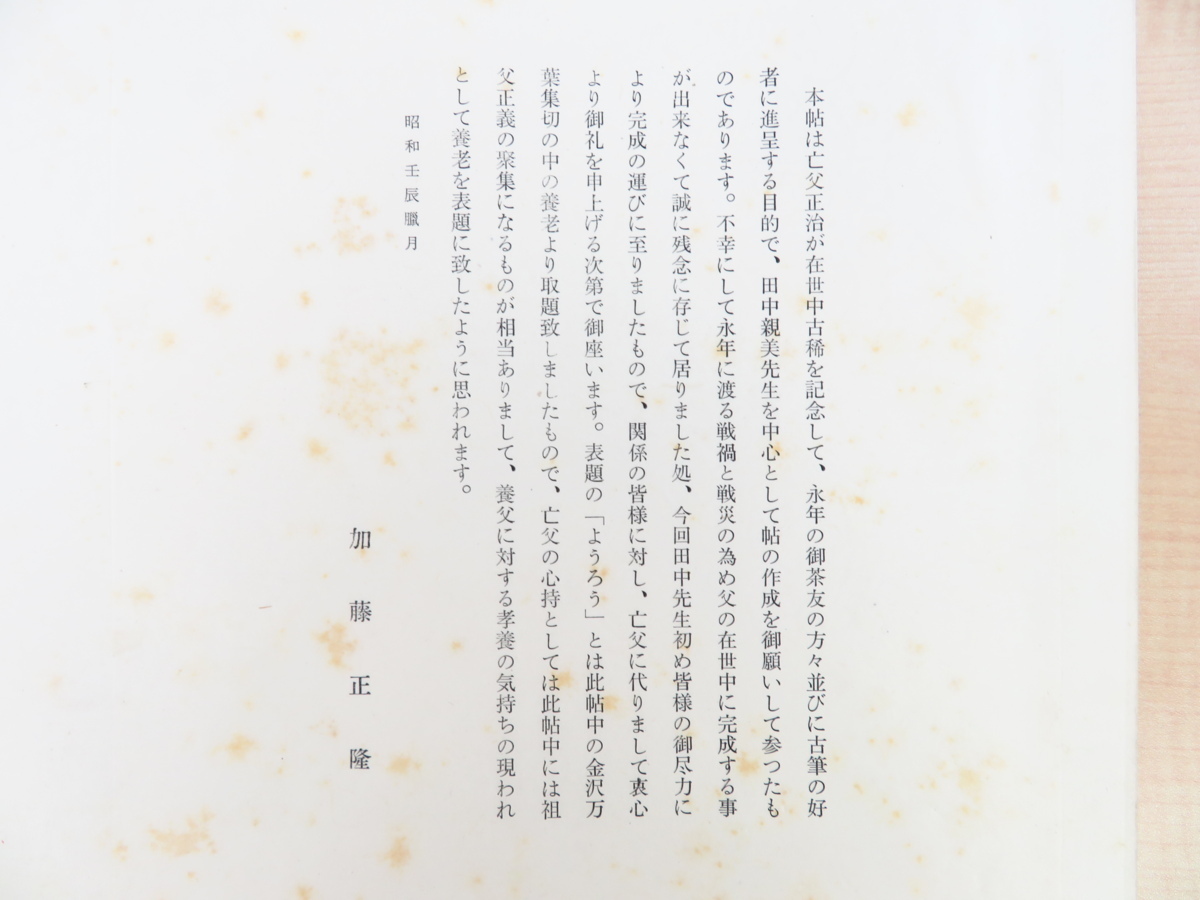 本帖は亡父正治が在世中古稀を記念して、永年の御茶友の方々並びに古筆の好
者に進呈する目的で、田中親美先生を中心として帖の作成を御願いして参つたも
のであります。不幸にして永年に渡る戦禍と戦災の為め父の在世中に完成する事
が出来なくて誠に残念に存じて居りました処、今回田中先生初め皆様の御尽力に
より完成の運びに至りましたもので、関係の皆様に対し、亡父に代りまして衷心
より御礼を申上げる次第で御座います。表題の「ようろう」とは此帖中の金沢万
葉集切の中の養老より取題致しましたもので、亡父の心持としては此帖中には祖
父正義の聚集になるものが相当ありまして、養父に対する孝養の気持ちの現われ
として養老を表題に致したように思われます。
昭和壬辰臘月
加藤正隆